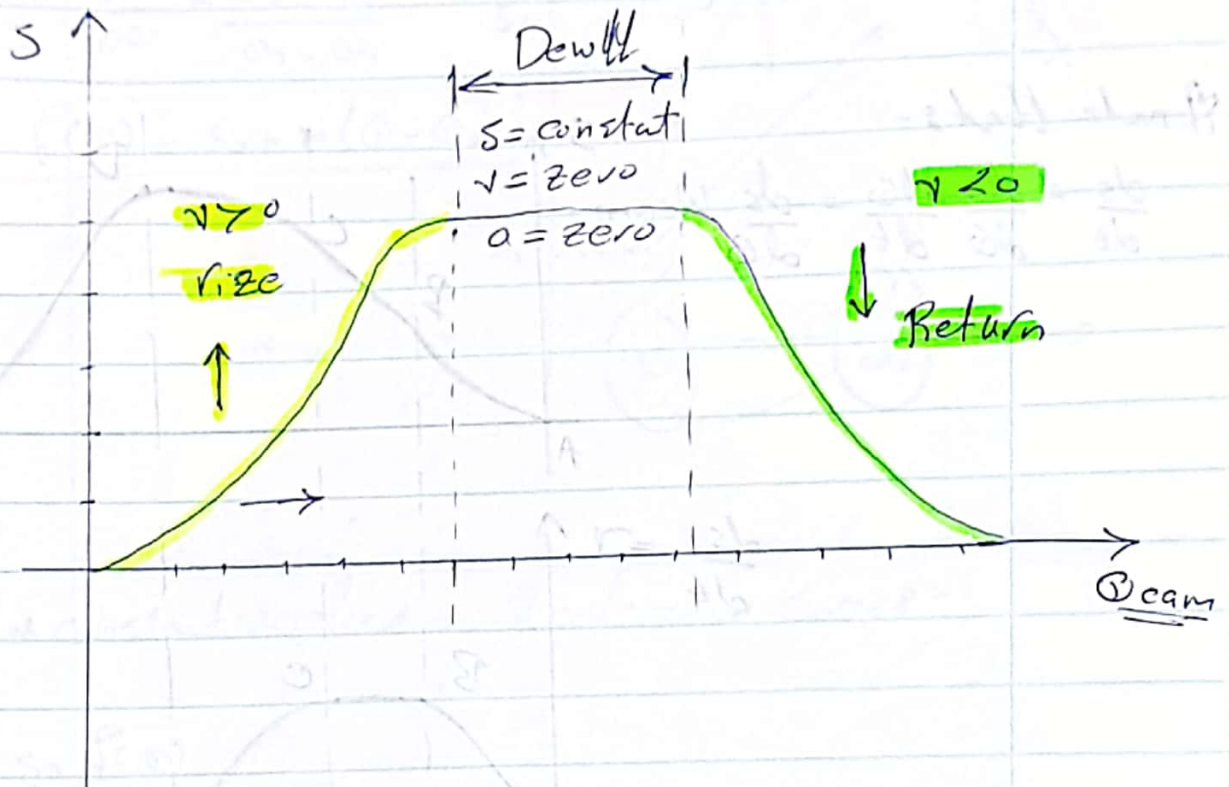 S
Dewll
S = constat
v = zero
a = zero
v > 0
rize
v < 0
Return
θcam